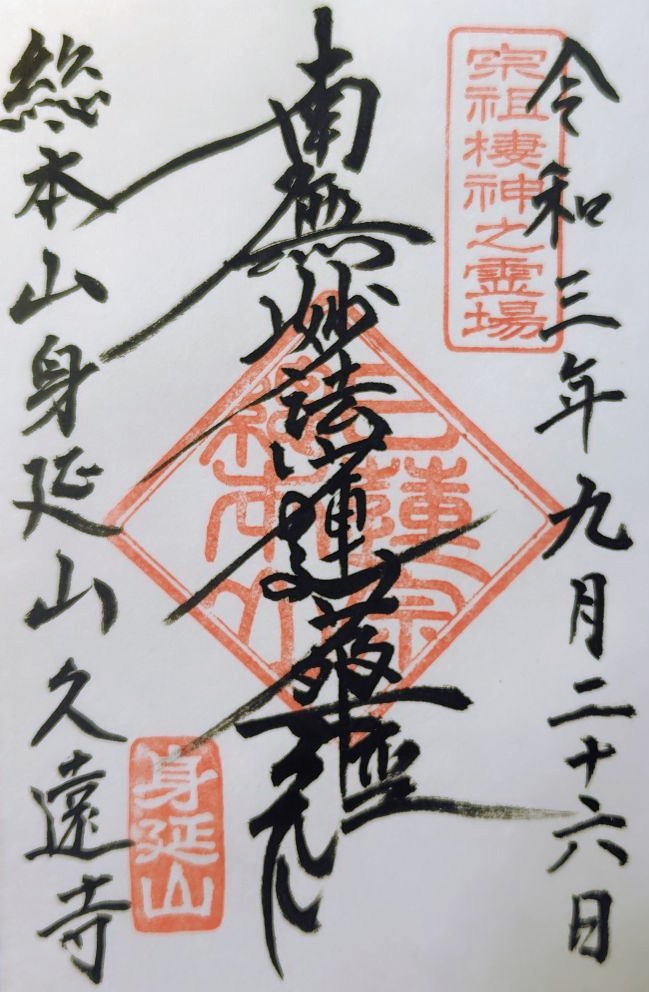 令和三年九月二十六日
宗祖棲神之霊場
南無妙法蓮華經
日蓮宗
総本山
総本山身延山久遠寺
身延山